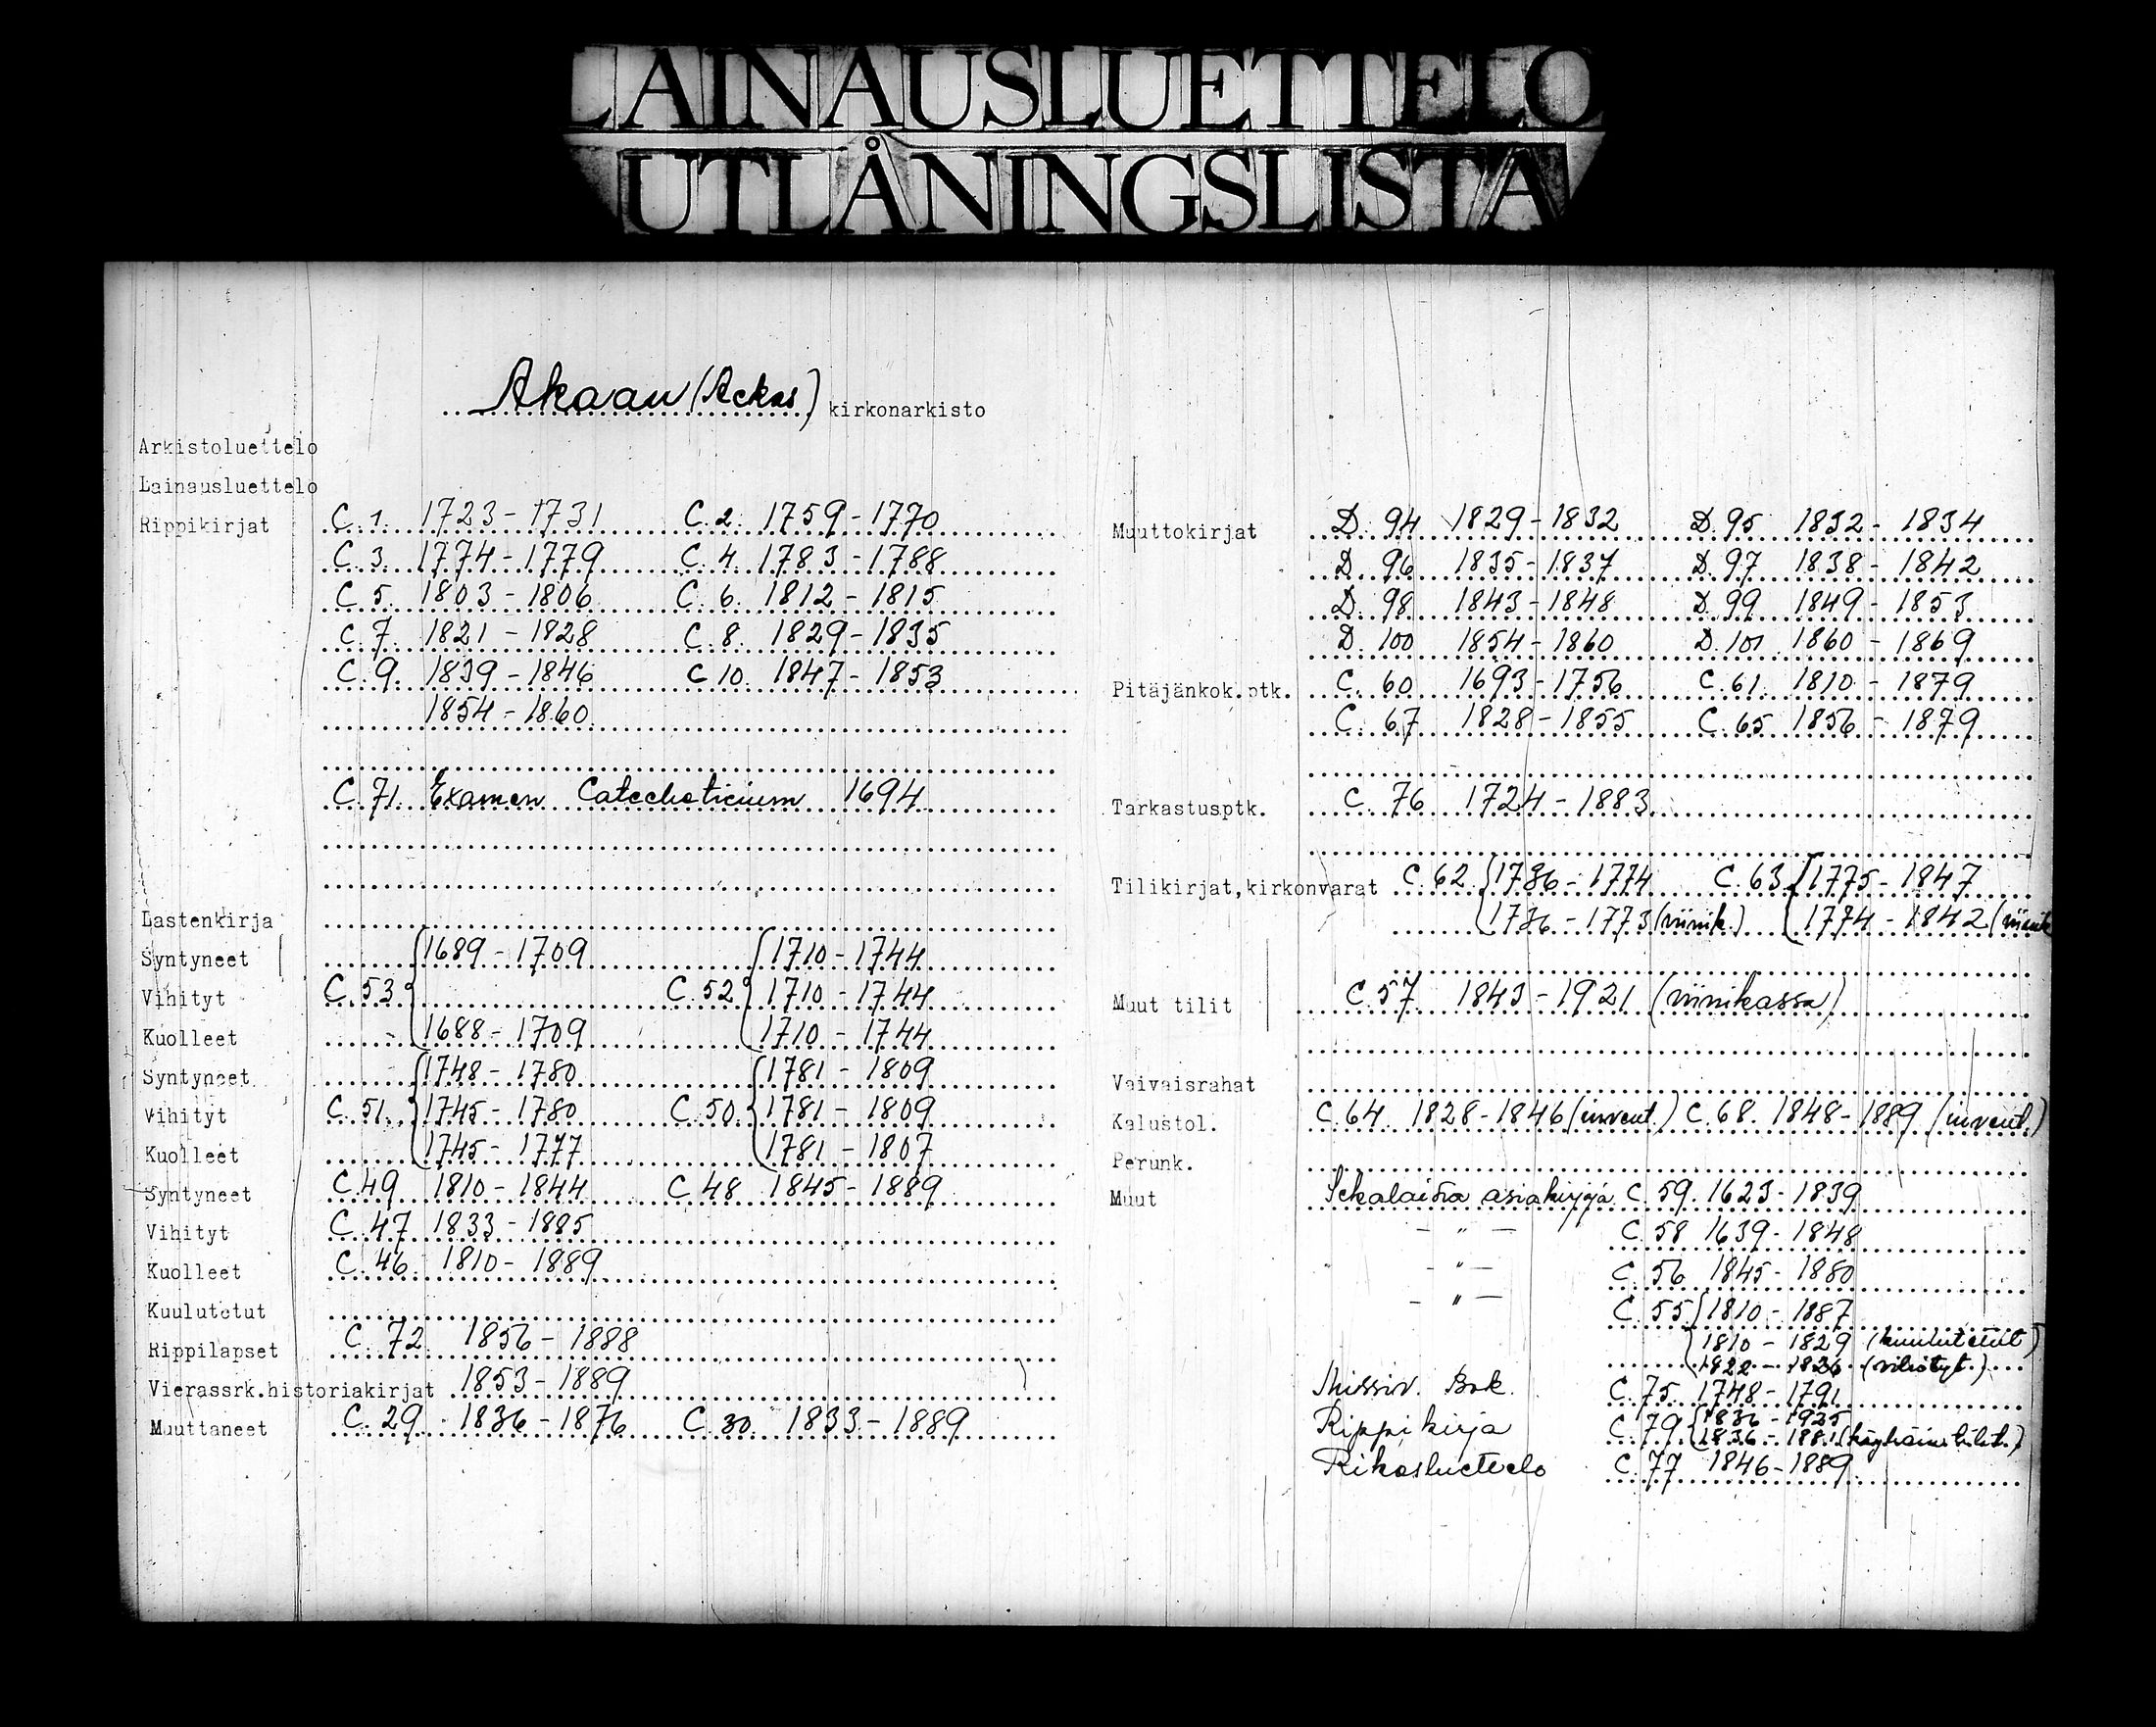 LAINAUSLUETTELO
UTLÅNINGSLISTA
Akaan (Ackas) kirkonarkisto
Arkistoluettelo
Lainausluettelo
Rippikirjat C. 1. 1723-1731 C. 2. 1759-1770
C. 3. 1774-1779 C. 4. 1783-1788
C. 5. 1803-1806 C. 6. 1812-1815
C. 7. 1821-1828 C. 8. 1829-1835
C. 9. 1839-1846 C 10. 1847-1853
1854-1860
C. 71. Examen Catecheticium 1694
Lastenkirja
Syntyneet 1689-1709 1710-1744
Vihityt C. 53 C. 52 1710-1744
Kuolleet 1688-1709 1710-1744
Syntyneet 1748-1780 1781-1809
Vihityt C. 51. 1745-1780 C. 50. 1781-1809
Kuolleet 1745-1777 1781-1807
Syntyneet C. 49 1810-1844 C. 48 1845-1889
Vihityt C. 47 1833-1885
Kuolleet C. 46. 1810-1889
Kuulutetut
Rippilapset C. 72 1856-1888
Vierassrk.historiakirjat 1853-1889
Muuttaneet C. 29 1836-1876 C. 30. 1833-1889
Muuttokirjat D. 94 1829-1832 D. 95 1832-1834
D. 96 1835-1837 D. 97 1838-1842
D. 98 1843-1848 D. 99 1849-1853
D. 100 1854-1860 D. 101 1860-1869
Pitäjänkok.ptk. C. 60 1693-1756 C. 61. 1810-1879
C. 67 1828-1855 C. 65 1856-1879
Tarkastusptk. C. 76 1724-1883
Tilikirjat,kirkonvarat C. 62 1736-1774 C. 63 1775-1847
1736-1773 (viinik.) 1774-1842 (viinik
Muut tilit C. 57 1843-1921 (viinikassa)
Vaivaisrahat
Kalustol. C. 64. 1828-1846 (invent.) C. 68. 1848-1889 (invent.)
Perunk.
Muut Sekalaisia asiakirjoja C. 59. 1623-1839
- " - C. 58 1639-1848
- " - C. 56 1845-1880
- " - C. 55 1810-1887
1810-1829 (kuulutetut)
1822-1836 (vihityt.)
Missiv. Bok. C. 75. 1748-1791
Rippikirja C. 79 1836-1925
1836-1881
Rikosluettelo C. 77 1846-1889